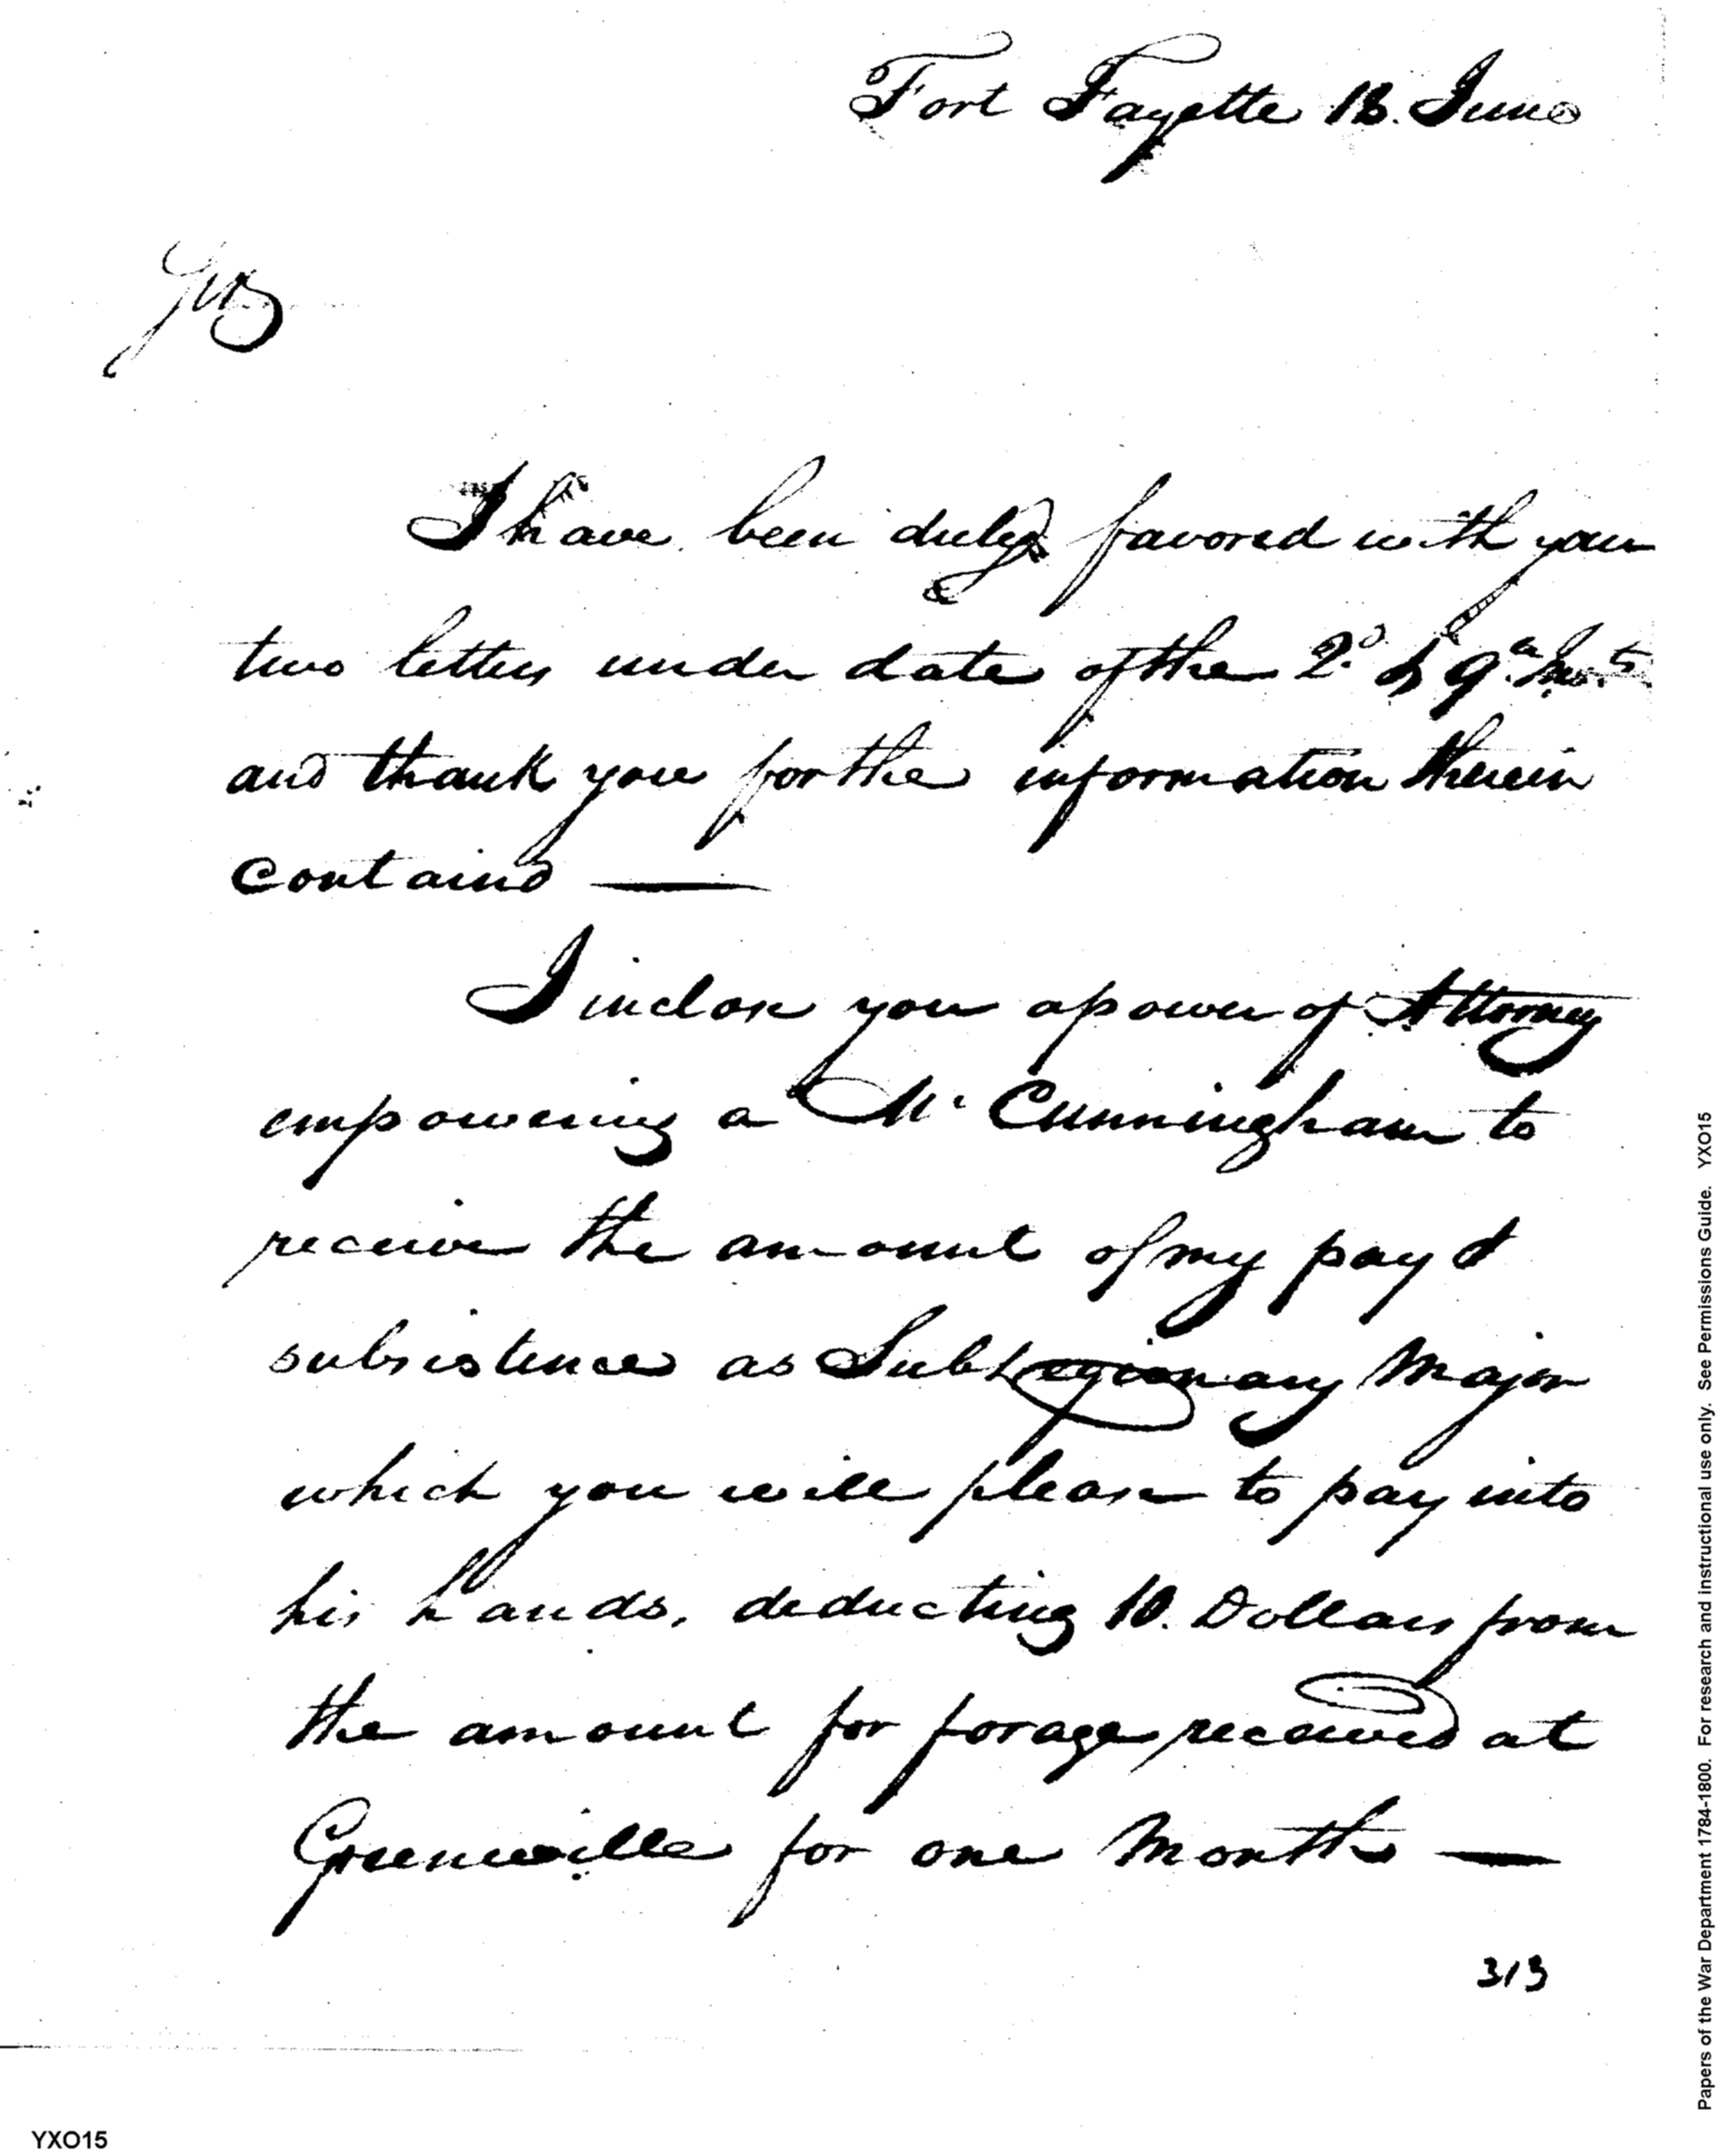 Fort Fayette 18. June
Sir
I have been duly favored with your
two letters under date of the 2d & 9th Inst
and thank you for the information therein
containd —
I inclose you a power of Attorney
empowering a Mr Cunningham to
receive the amount of my pay &
subsistence as Sublegionary Major
which you will please to pay into
his hands, deducting 10. Dollars from
the amount for forage received at
Greenville for one Month —
313
Papers of the War Department 1784-1800. For research and instructional use only. See Permissions Guide. YXO15
YXO15